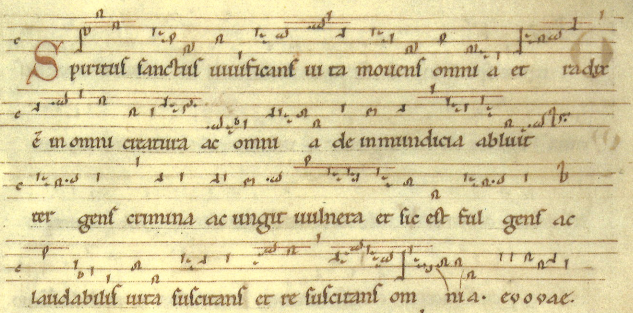 Spiritus sanctus uiuificans ui ta mouens omni a et radix
ē in omni creatura ac omni a de inmundicia abluit
ter gens crimina ac ungit uulnera et sic est ful gens ac
laudabilis uita suscitans et re suscitans om nia. evovae.